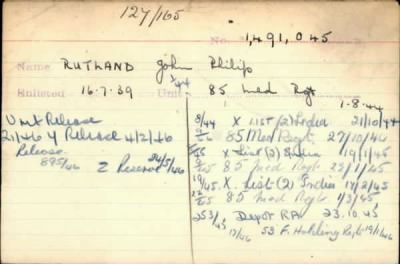 127/165
No. 1,491,045
Name RUTLAND John Philip
Enlisted 16.7.39 Unit 85 Med Rgt
1-8-44
Unit Release
21/46 Y Release 4/2/46
Release
895/46 Z Reserve 24/5/46
8/44 X List (2) India 21/10/44
85 Med Regt 27/10/46
X List (2) India 19/1/45
85 Med Regt 23/1/45
19/45 X List (2) India 17/2/45
85 Med Regt 1/3/45
253/45 Depot RA 23.10.45
17/46 53 F. Holding Regt 19/1/46